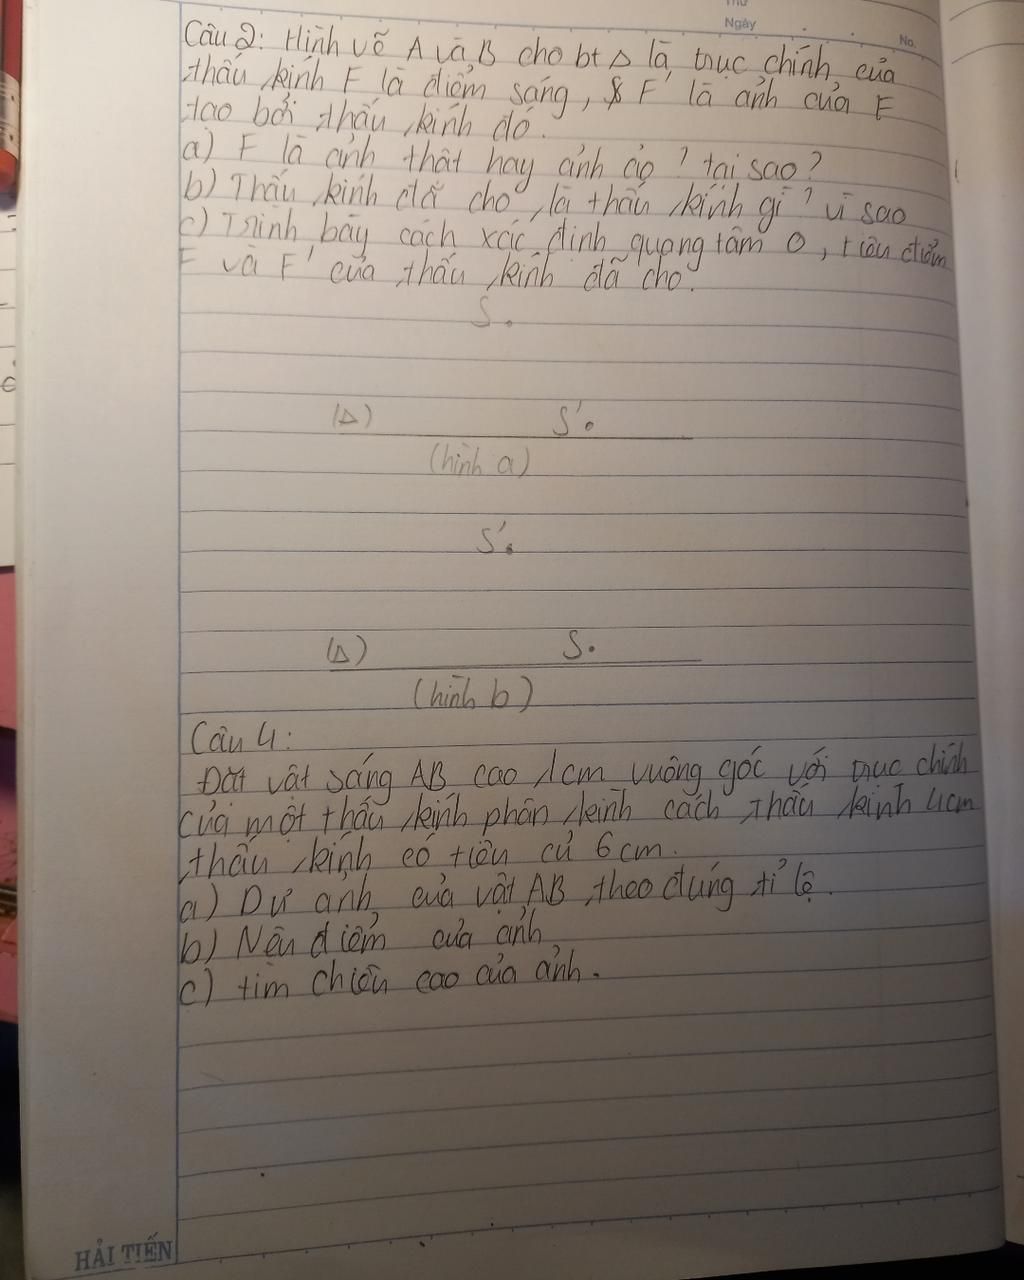 Thứ
Ngày
No.
Câu 2: Hình vẽ A và B cho bt Δ là trục chính của
thấu kính F là điểm sáng, F' là ảnh của F
tạo bởi thấu kính đó.
a) F là ảnh thật hay ảnh ảo? tại sao?
b) Thấu kính đã cho là thấu kính gì? vì sao
c) Trình bày cách xác định quang tâm O, tiêu điểm
F và F' của thấu kính đã cho.
S.
(Δ) S'.
(hình a)
S'.
(Δ) S.
(hình b)
Câu 4:
Đặt vật sáng AB cao 1cm vuông góc với trục chính
của một thấu kính phân kính cách thấu kính 4cm
thấu kính có tiêu cự 6cm.
a) Dự ảnh của vật AB theo đúng tỉ lệ.
b) Nêu điểm của ảnh
c) tìm chiều cao của ảnh.
HẢI TIẾN